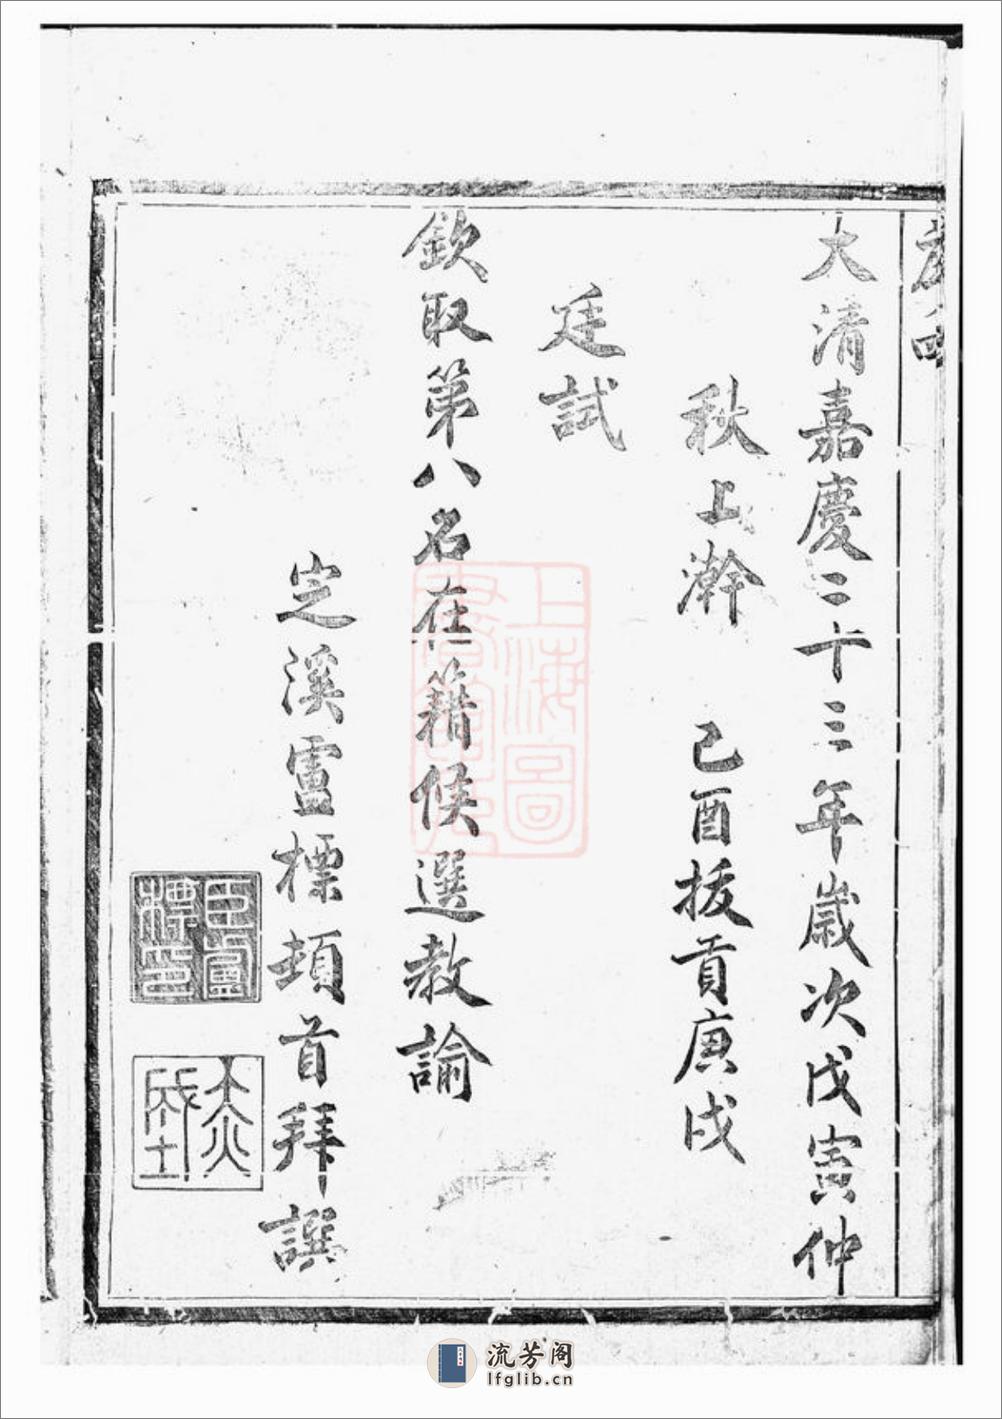 大清嘉慶二十三年歲次戊寅仲
秋上澣 己酉拔貢庚戌
廷試
欽取第八名在籍候選教諭
芝溪盧標頓首拜譔
臣盧標印
上海圖
流芳阁
lfglib.cn